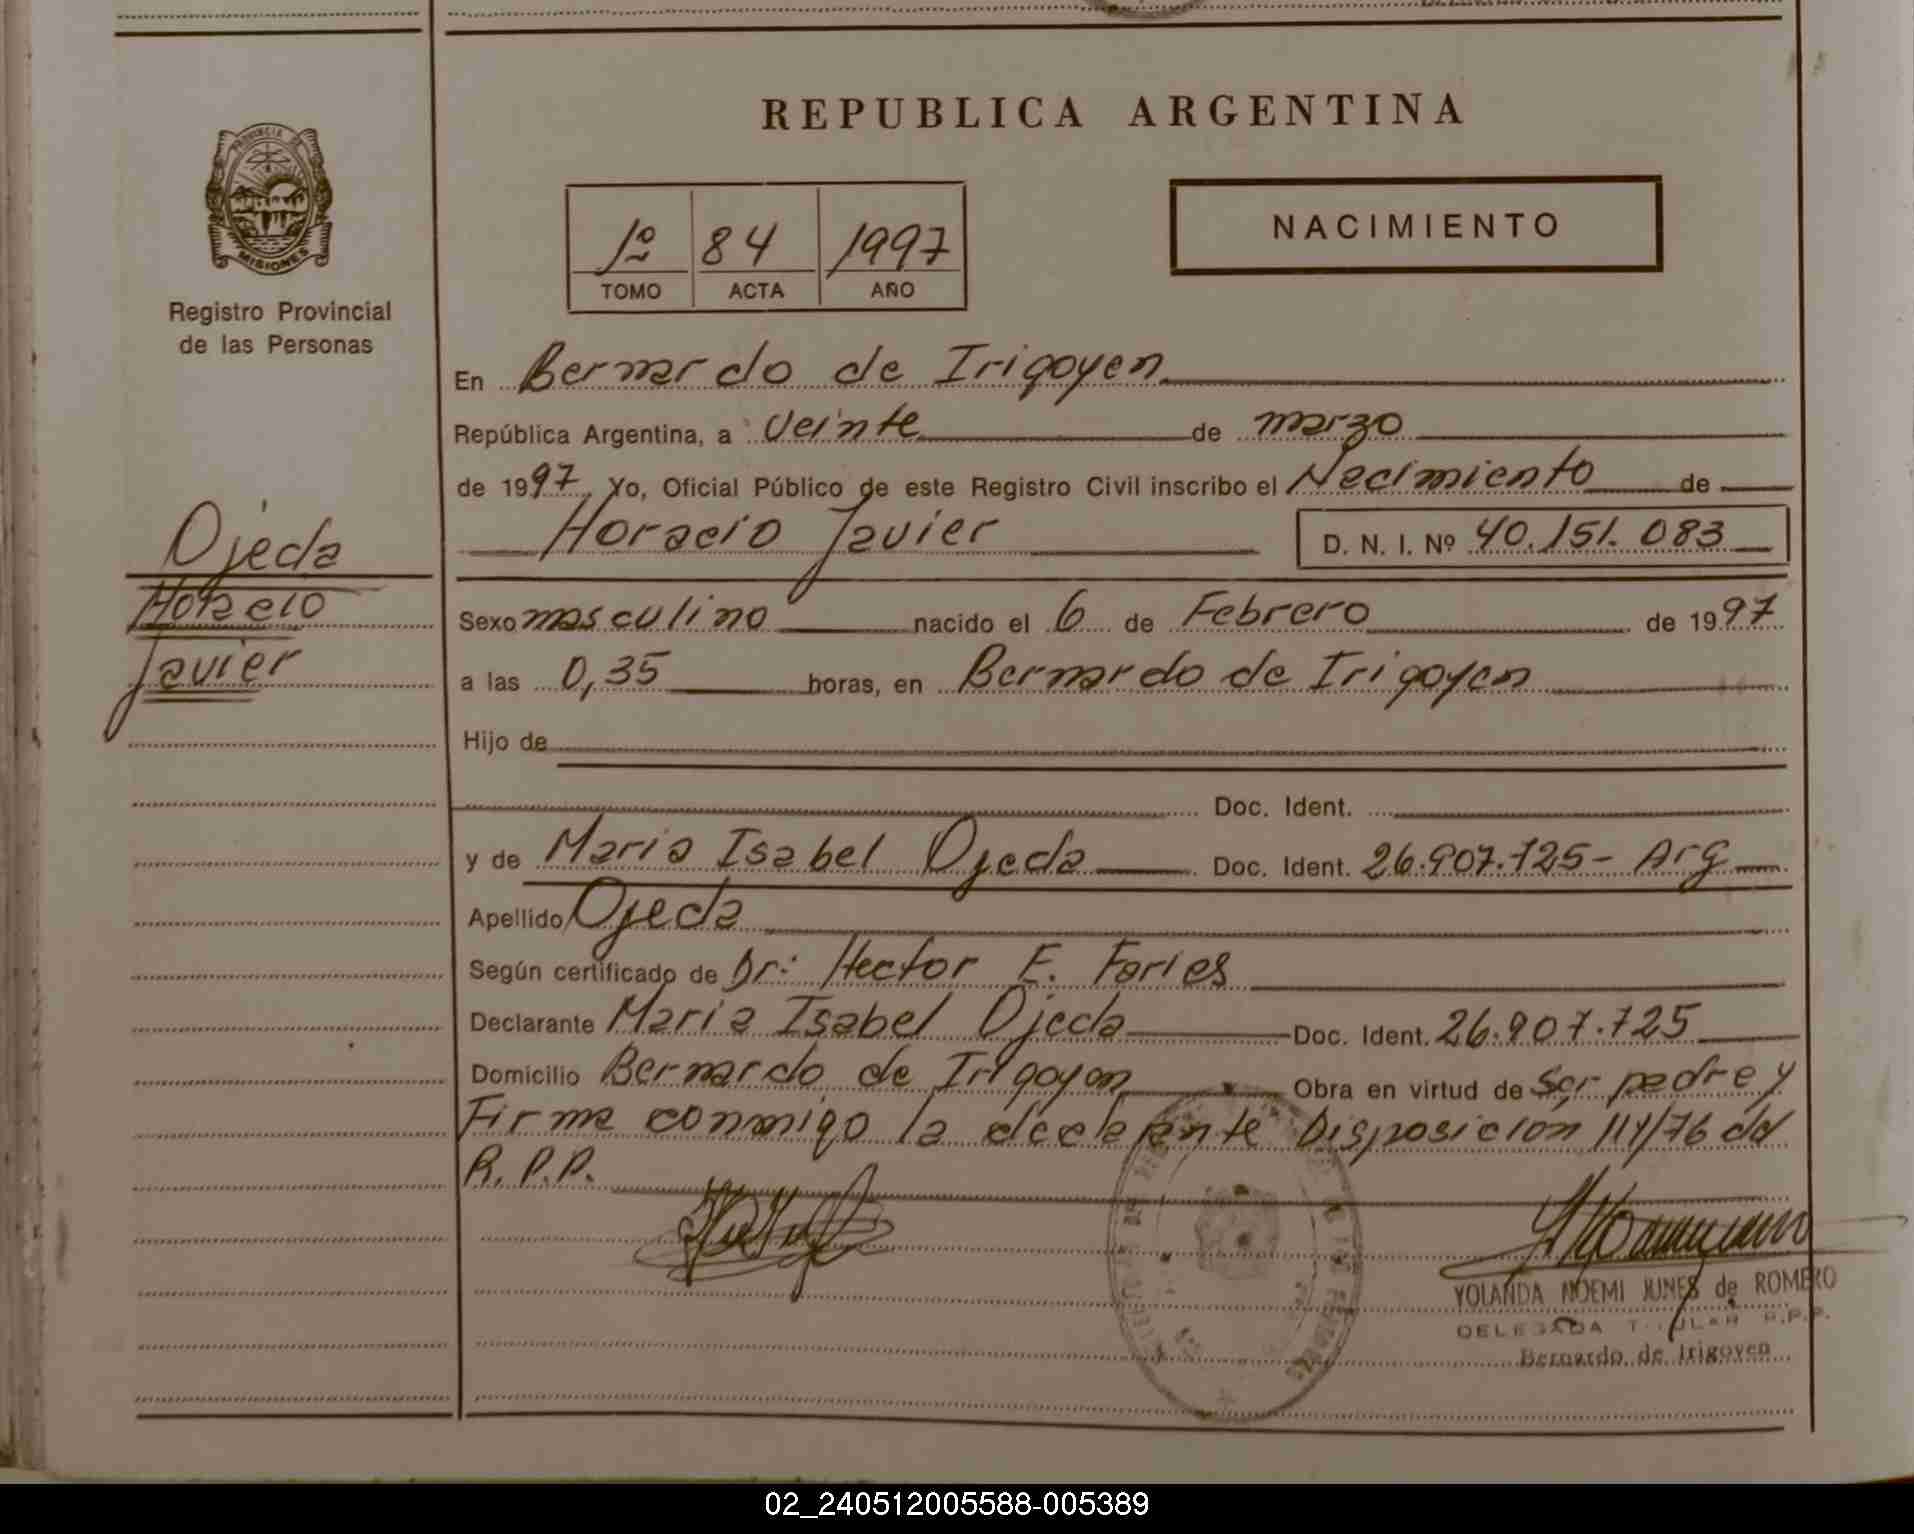 REPUBLICA ARGENTINA
PROVINCIA DE
MISIONES
Registro Provincial
de las Personas
1º 84 1997
TOMO ACTA AÑO
NACIMIENTO
En Bernardo de Irigoyen
República Argentina, a veinte de marzo
de 1997 Yo, Oficial Público de este Registro Civil inscribo el Nacimiento de
Horacio Javier D. N. I. Nº 40.151.083
Ojeda
Horacio
Javier
Sexo masculino nacido el 6 de Febrero de 1997
a las 0,35 horas, en Bernardo de Irigoyen
Hijo de
Doc. Ident.
y de Maria Isabel Ojeda Doc. Ident. 26.907.725- Arg
Apellido Ojeda
Según certificado de Dr: Hector E. Faries
Declarante Maria Isabel Ojeda Doc. Ident. 26.907.725
Domicilio Bernardo de Irigoyen Obra en virtud de ser padre y
Firma conmigo la declarante Disposición 114/76 del
R.P.P.
YOLANDA NOEMI JUNES de ROMERO
DELEGADA TITULAR R.P.P.
Bernardo de Irigoyen
02_240512005588-005389